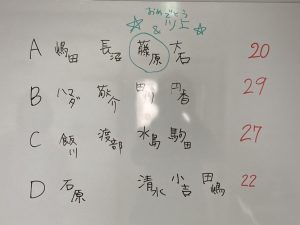 おめでとう
☆ & 川上 ☆
A 嶋田 長沼 藤原 大石 20
B ハマダ 敬介 円香 29
C 飯川 渡部 水島 駒田 27
D 石原 清水 小吉 田嶋 22